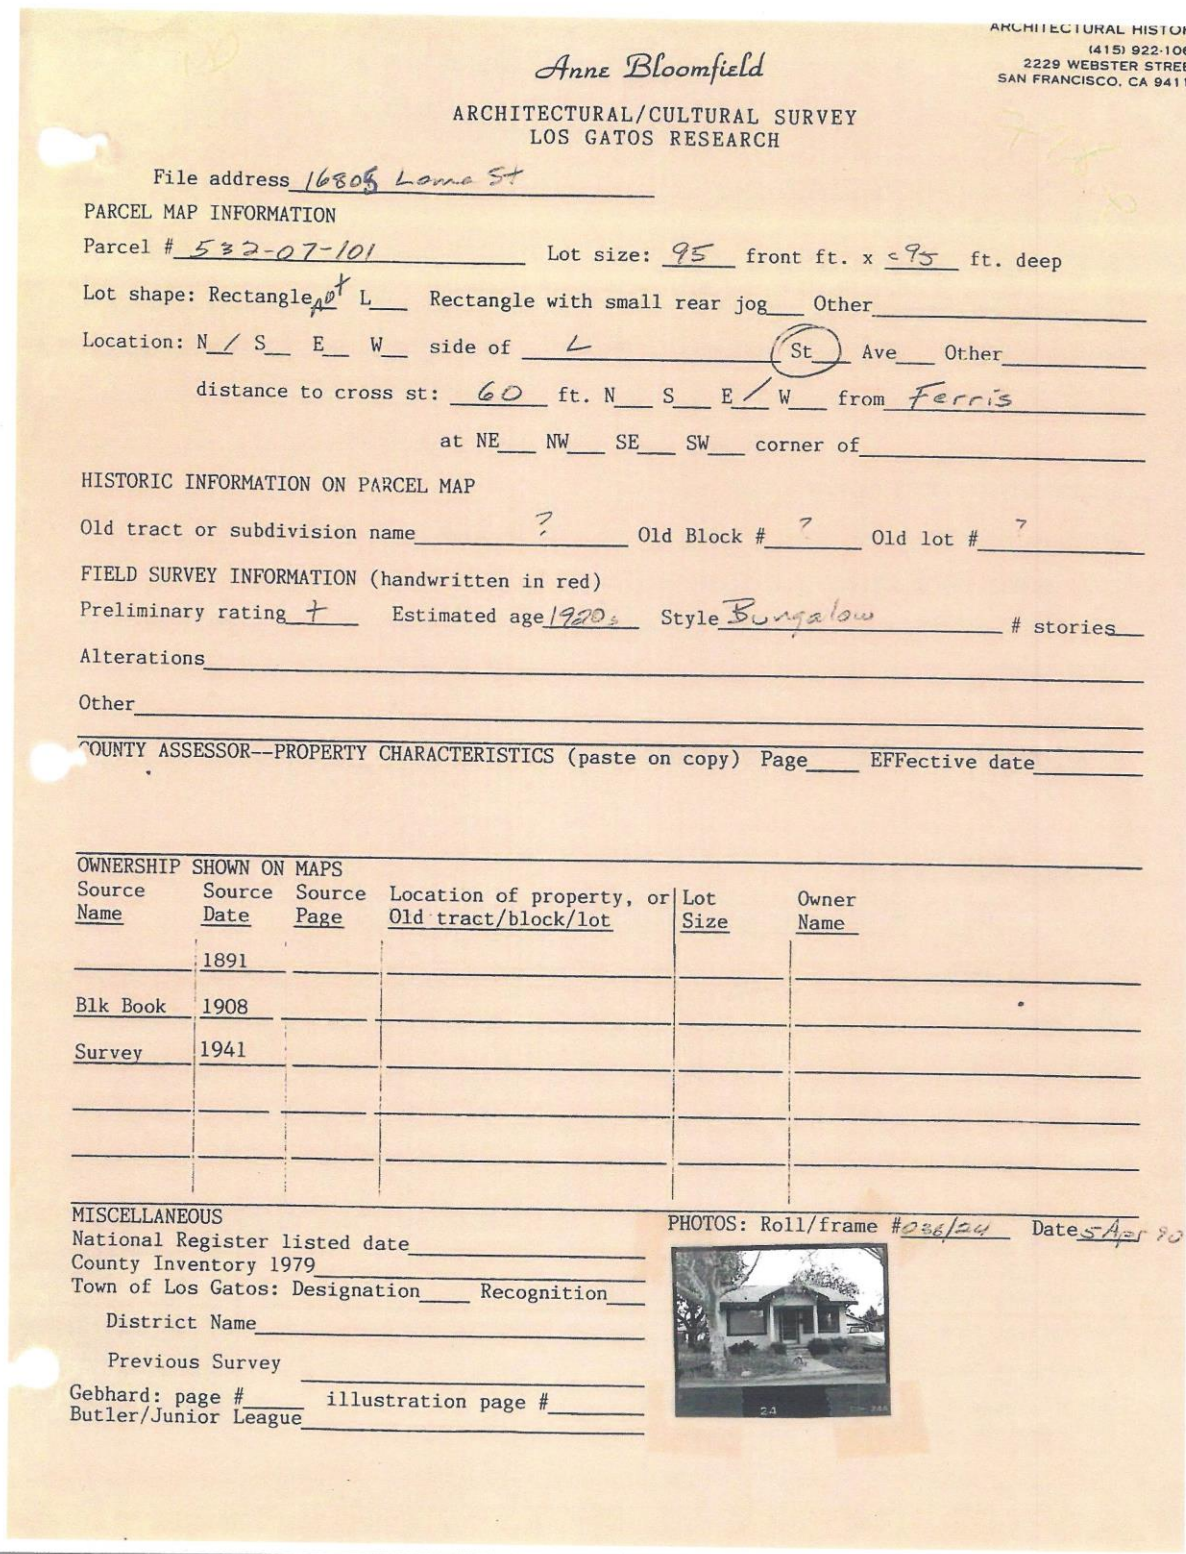 ARCHITECTURAL HISTO
(415) 922-10
2229 WEBSTER STREE
SAN FRANCISCO, CA 941
Anne Bloomfield
ARCHITECTURAL/CULTURAL SURVEY
LOS GATOS RESEARCH
File address 16805 Loma St
PARCEL MAP INFORMATION
Parcel # 532-07-101 Lot size: 95 front ft. x <95 ft. deep
Lot shape: Rectangle L Rectangle with small rear jog Other
Location: N / S E W side of L St Ave Other
distance to cross st: 60 ft. N S E / W from Ferris
at NE NW SE SW corner of
HISTORIC INFORMATION ON PARCEL MAP
Old tract or subdivision name ? Old Block # ? Old lot # ?
FIELD SURVEY INFORMATION (handwritten in red)
Preliminary rating + Estimated age 1920s Style Bungalow # stories
Alterations
Other
COUNTY ASSESSOR--PROPERTY CHARACTERISTICS (paste on copy) Page EFFective date
OWNERSHIP SHOWN ON MAPS
Source Source Source Location of property, or Lot Owner
Name Date Page Old tract/block/lot Size Name
1891
Blk Book 1908
Survey 1941
MISCELLANEOUS
PHOTOS: Roll/frame #036/24 Date 5 Apr 90
National Register listed date
County Inventory 1979
Town of Los Gatos: Designation Recognition
District Name
Previous Survey
Gebhard: page # illustration page #
Butler/Junior League
24